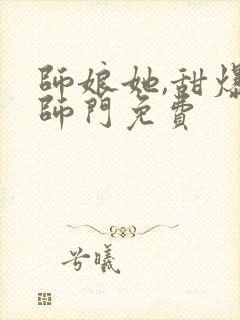 師娘她,甜爆
師門免費
兮曦